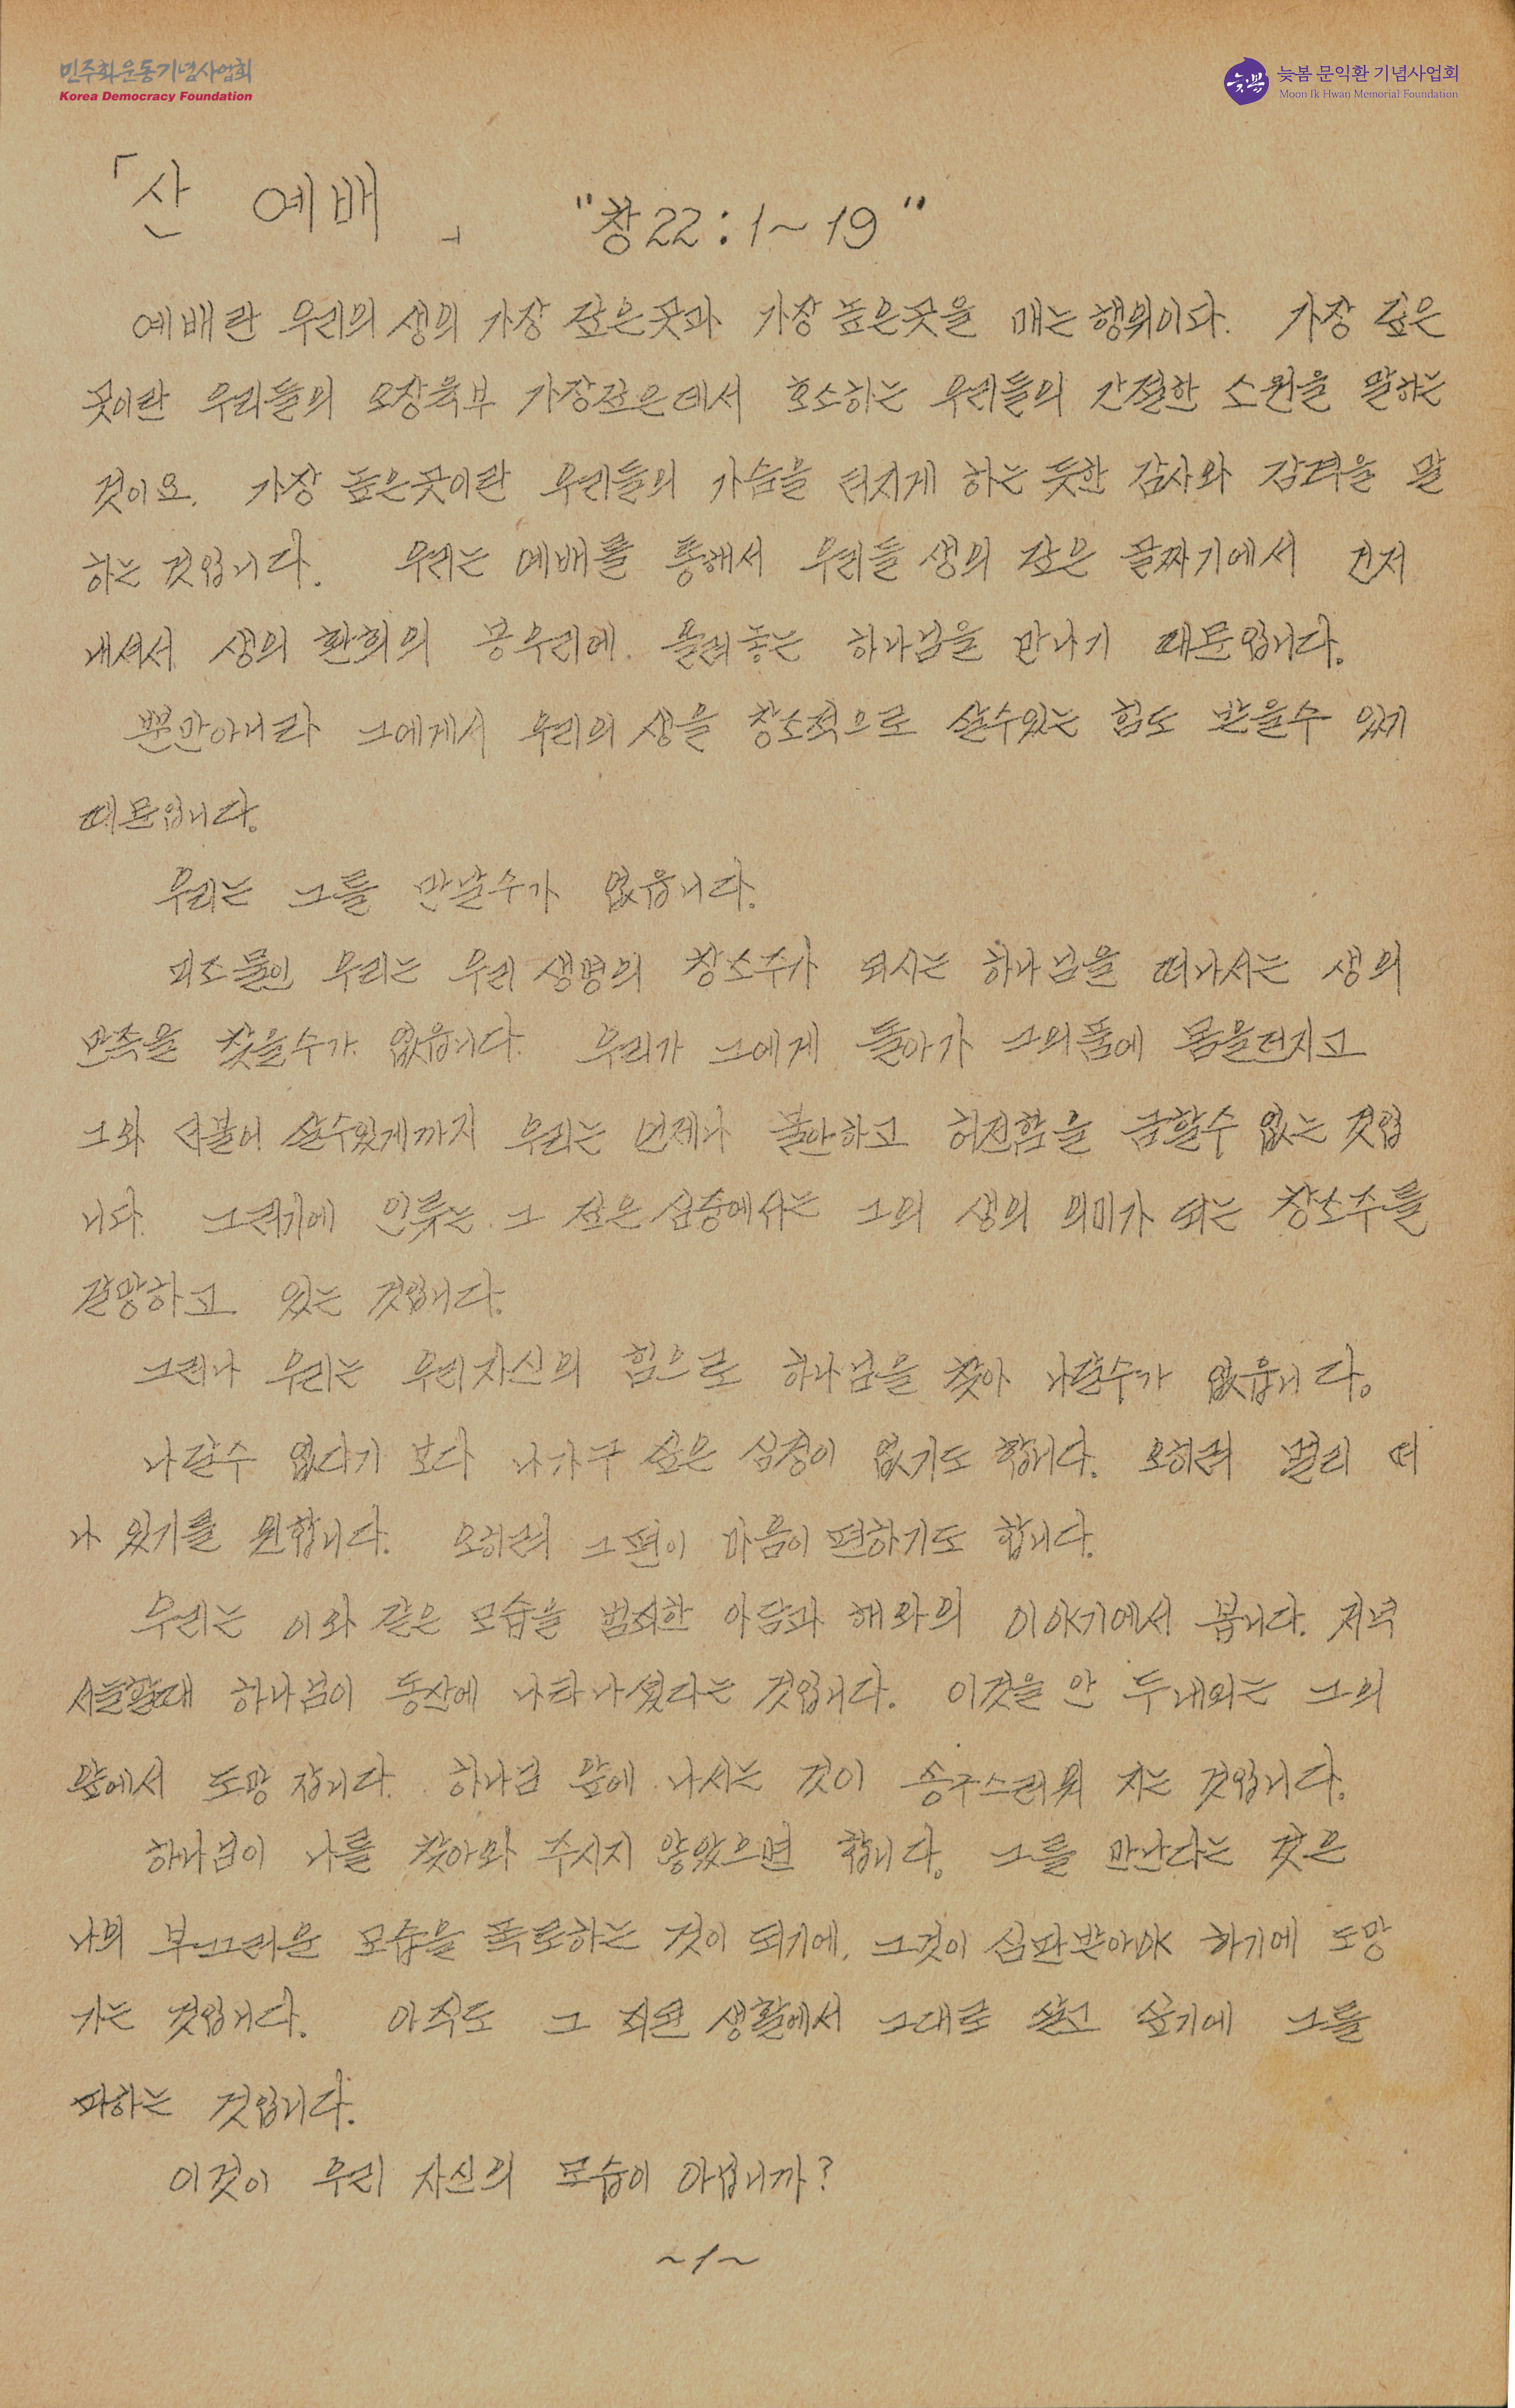 민주화운동기념사업회
Korea Democracy Foundation
늦봄
늦봄 문익환 기념사업회
Moon Ik Hwan Memorial Foundation
「산 예배」 "창22:1~19"
예배란 우리의 생의 가장 깊은곳과 가장 높은곳을 매는 행위이다. 가장 깊은
곳이란 우리들의 오장육부 가장깊은데서 호소하는 우리들의 간절한 소원을 말하는
것이요. 가장 높은곳이란 우리들의 가슴을 터지게 하는 듯한 감사와 감격을 말
하는 것입니다. 우리는 예배를 통해서 우리들 생의 깊은 골짜기에서 건저
내셔서 생의 환희의 봉우리에 올려놓는 하나님을 만나기 때문입니다.
뿐만아니라 그에게서 우리의 생을 창조적으로 살수있는 힘도 받을수 있기
때문입니다.
우리는 그를 만날수가 없읍니다.
피조물인 우리는 우리 생명의 창조주가 되시는 하나님을 떠나서는 생의
만족을 찾을수가 없읍니다. 우리가 그에게 돌아가 그의품에 몸을던지고
그와 더불어 살수있게까지 우리는 언제나 불안하고 허전함을 금할수 없는 것입
니다. 그렇기에 인류는 그 깊은 심중에서는 그의 생의 의미가 되는 창조주를
갈망하고 있는 것입니다.
그러나 우리는 우리자신의 힘으로 하나님을 찾아 나갈수가 없읍니다.
나갈수 없다기 보다 나가구 싶은 심정이 없기도 합니다. 오히려 멀리 떠
나 있기를 원합니다. 오히려 그편이 마음이 편하기도 합니다.
우리는 이와 같은 모습을 범죄한 아담과 해와의 이야기에서 봅니다. 저녁
서늘할때 하나님이 동산에 나타나셨다는 것입니다. 이것을 안 두내외는 그의
앞에서 도망 갑니다. 하나님 앞에 나서는 것이 송구스러워 지는 것입니다.
하나님이 나를 찾아와 주시지 않았으면 합니다. 그를 만난다는 것은
나의 부끄러운 모습을 폭로하는 것이 되기에, 그것이 심판받아야 하기에 도망
가는 것입니다. 아직도 그 죄된 생활에서 그대로 살고 싶기에 그를
피하는 것입니다.
이것이 우리 자신의 모습이 아닙니까?
~1~